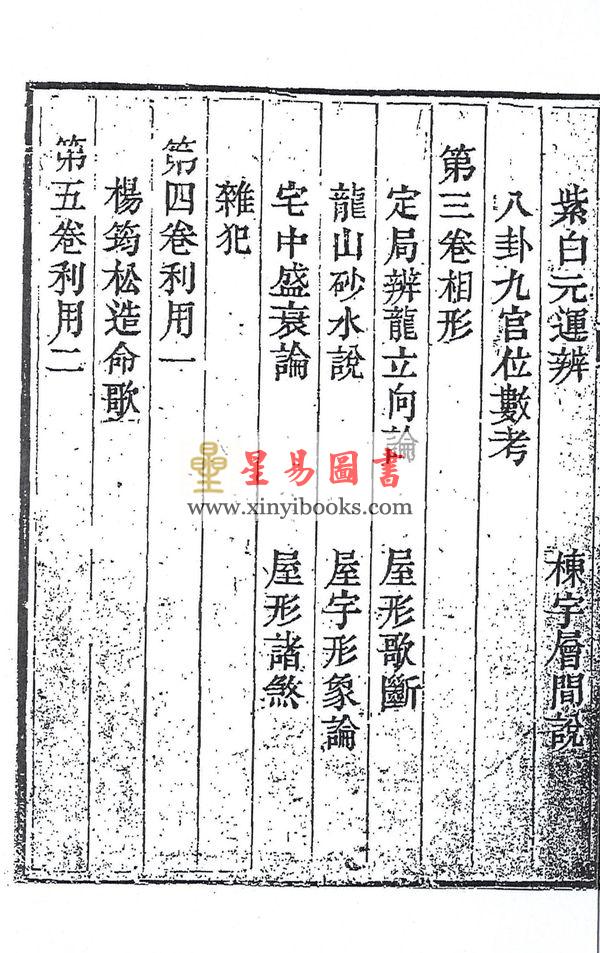 紫白元運辨　棟宇層間說
八卦九宮位數考
第三卷相形
定局辨龍立向論　屋形歌斷
龍山砂水說　屋宇形象論
宅中盛衰論　屋形諸煞
雜犯
第四卷利用一
楊筠松造命歌
第五卷利用二
星易圖書
www.xinyibooks.com